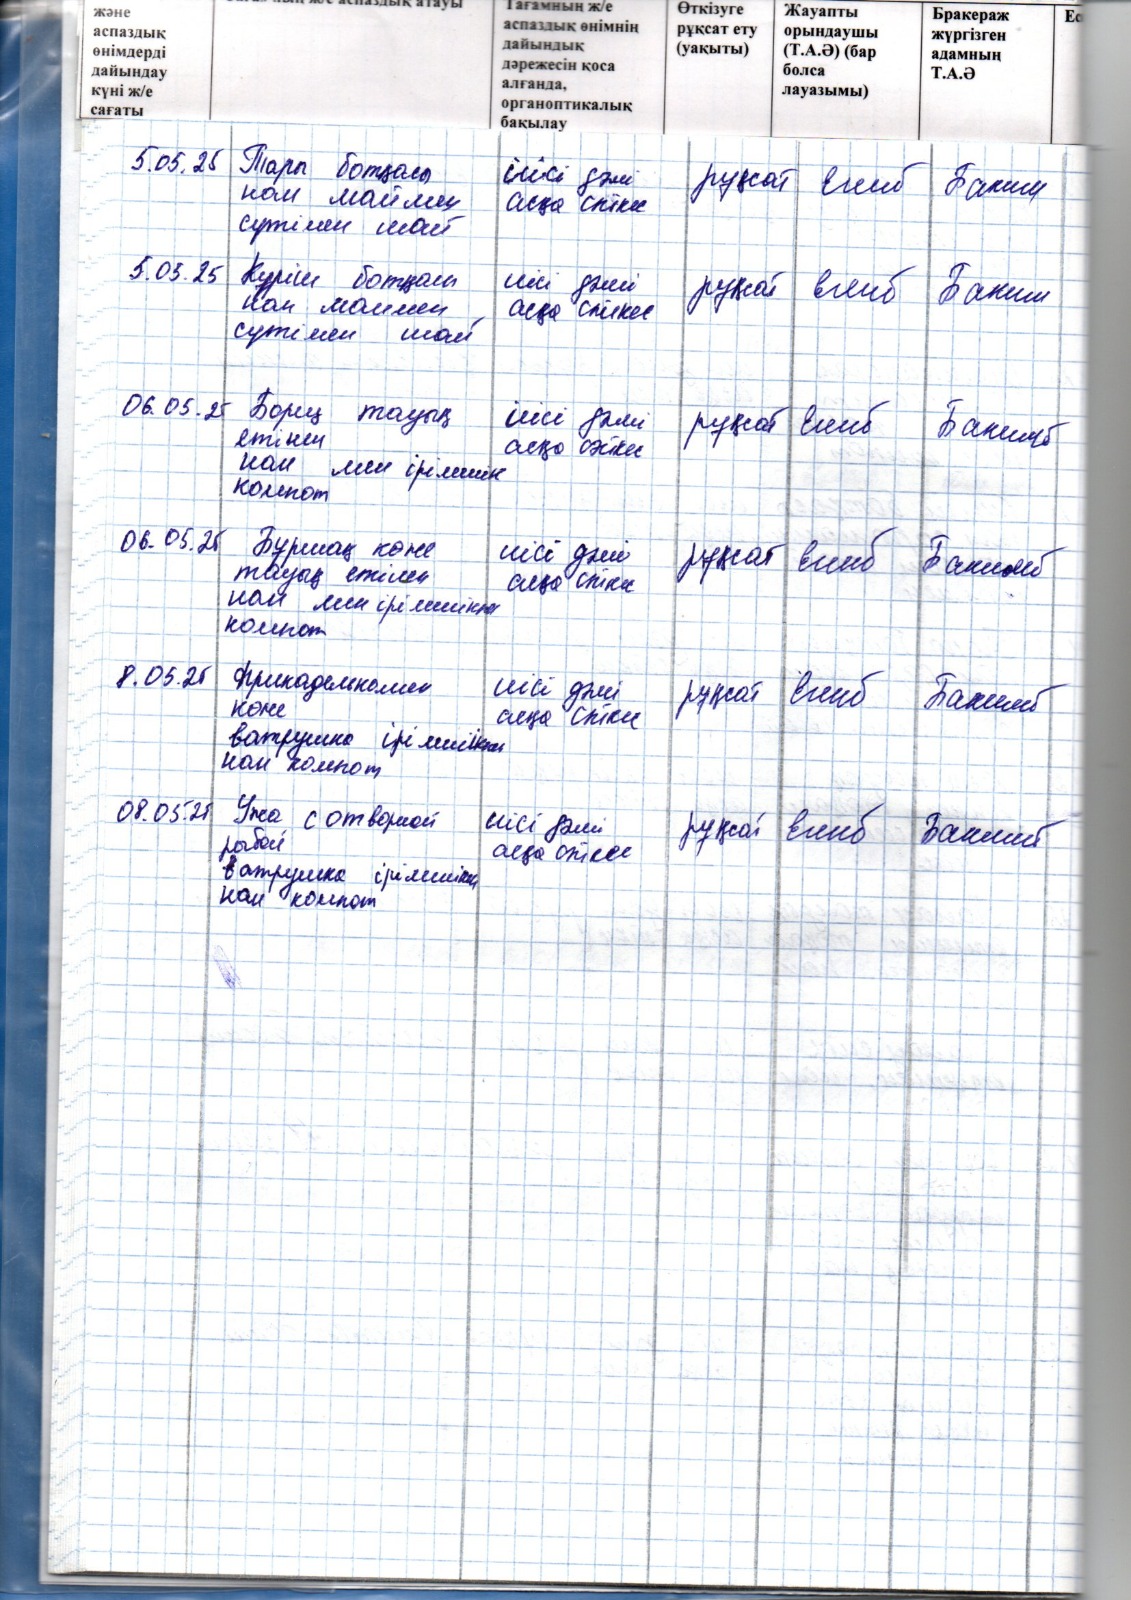 және
аспаздық
өнімдерді
дайындау
күні ж/е
сағаты
ж/е аспаздық атауы
Тағамның ж/е
аспаздық өнімнің
дайындық
дәрежесін қоса
алғанда,
органоптикалық
бақылау
Өткізуге
рұқсат ету
(уақыты)
Жауапты
орындаушы
(Т.А.Ә) (бар
болса
лауазымы)
Бракераж
жүргізген
адамның
Т.А.Ә
Ес
5.05.25 Тары ботқасы иісі дәмі рұқсат
нан маймен асқа сәйкес
сүтімен шай
5.05.25 Күріш ботқасы иісі дәмі рұқсат
нан маймен асқа сәйкес
сүтімен шай
06.05.25 Борщ тауық иісі дәмі рұқсат
етінен асқа сәйкес
нан мен ірімшік
компот
06.05.25 Бұршақ көже иісі дәмі рұқсат
тауық етімен асқа сәйкес
нан мен ірімшікпен
компот
8.05.25 Фрикаделькамен иісі дәмі рұқсат
көже асқа сәйкес
ватрушка ірімшікпен
нан компот
08.05.25 Уха с отварной иісі дәмі рұқсат
рыбой асқа сәйкес
ватрушка ірімшікпен
нан компот